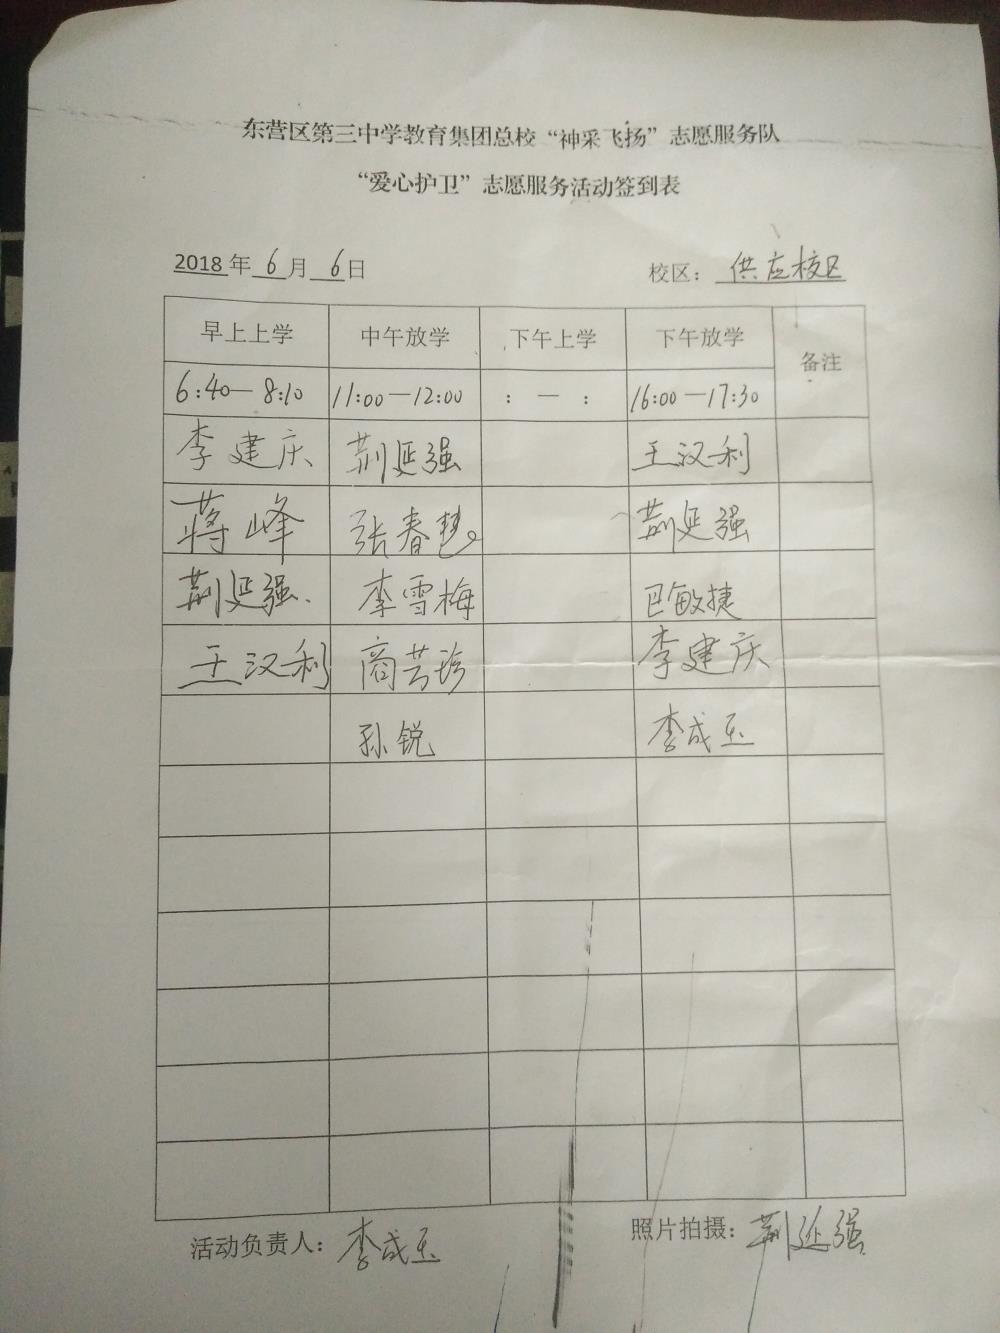 东营区第三中学教育集团总校“神采飞扬”志愿服务队
“爱心护卫”志愿服务活动签到表
2018年 6 月 6 日 校区：供应校区
早上上学 中午放学 下午上学 下午放学 备注
6:40—8:10 11:00—12:00 : — : 16:00—17:30
李建庆 荆延强 王汉利
蒋峰 张春慧 荆延强
荆延强 李雪梅 巴敏捷
王汉利 商芸珍 李建庆
孙锐 李成玉
活动负责人：李成玉 照片拍摄：荆延强